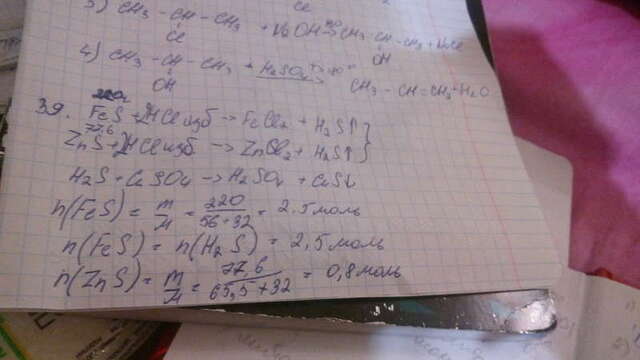 3) CH3 - CH - CH3 + NaOH H2O→ CH3 - CH - CH3 + NaCl
Cl
OH
4) CH3 - CH - CH3 + H2SO4
OH
CH3 - CH = CH2 + H2O
39. FeS + 2HCl изб → FeCl2 + H2S↑ }
77,6
ZnS + 2HCl изб → ZnCl2 + H2S↑ }
H2S + CuSO4 → H2SO4 + CuS↓
n(FeS) = m/μ = 220/56+32 = 2.5 моль
n(FeS) = n(H2S) = 2,5 моль
n(ZnS) = m/μ = 77,6/65,5+32 = 0,8 моль